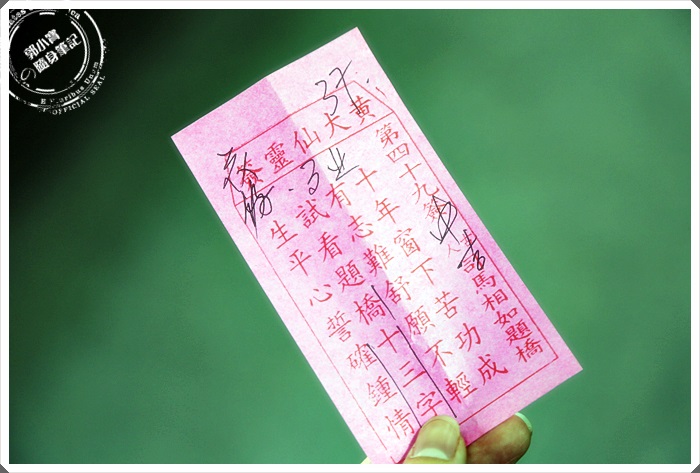 郭小寶
の隨身筆記
E Pluribus Unum
OFFICIAL SEAL
37
黃大仙靈簽
第四十九
中吉
司馬相如題橋
十年窗下苦功成
有志難舒願不輕
試看題橋十三字
生平心誓確鍾情